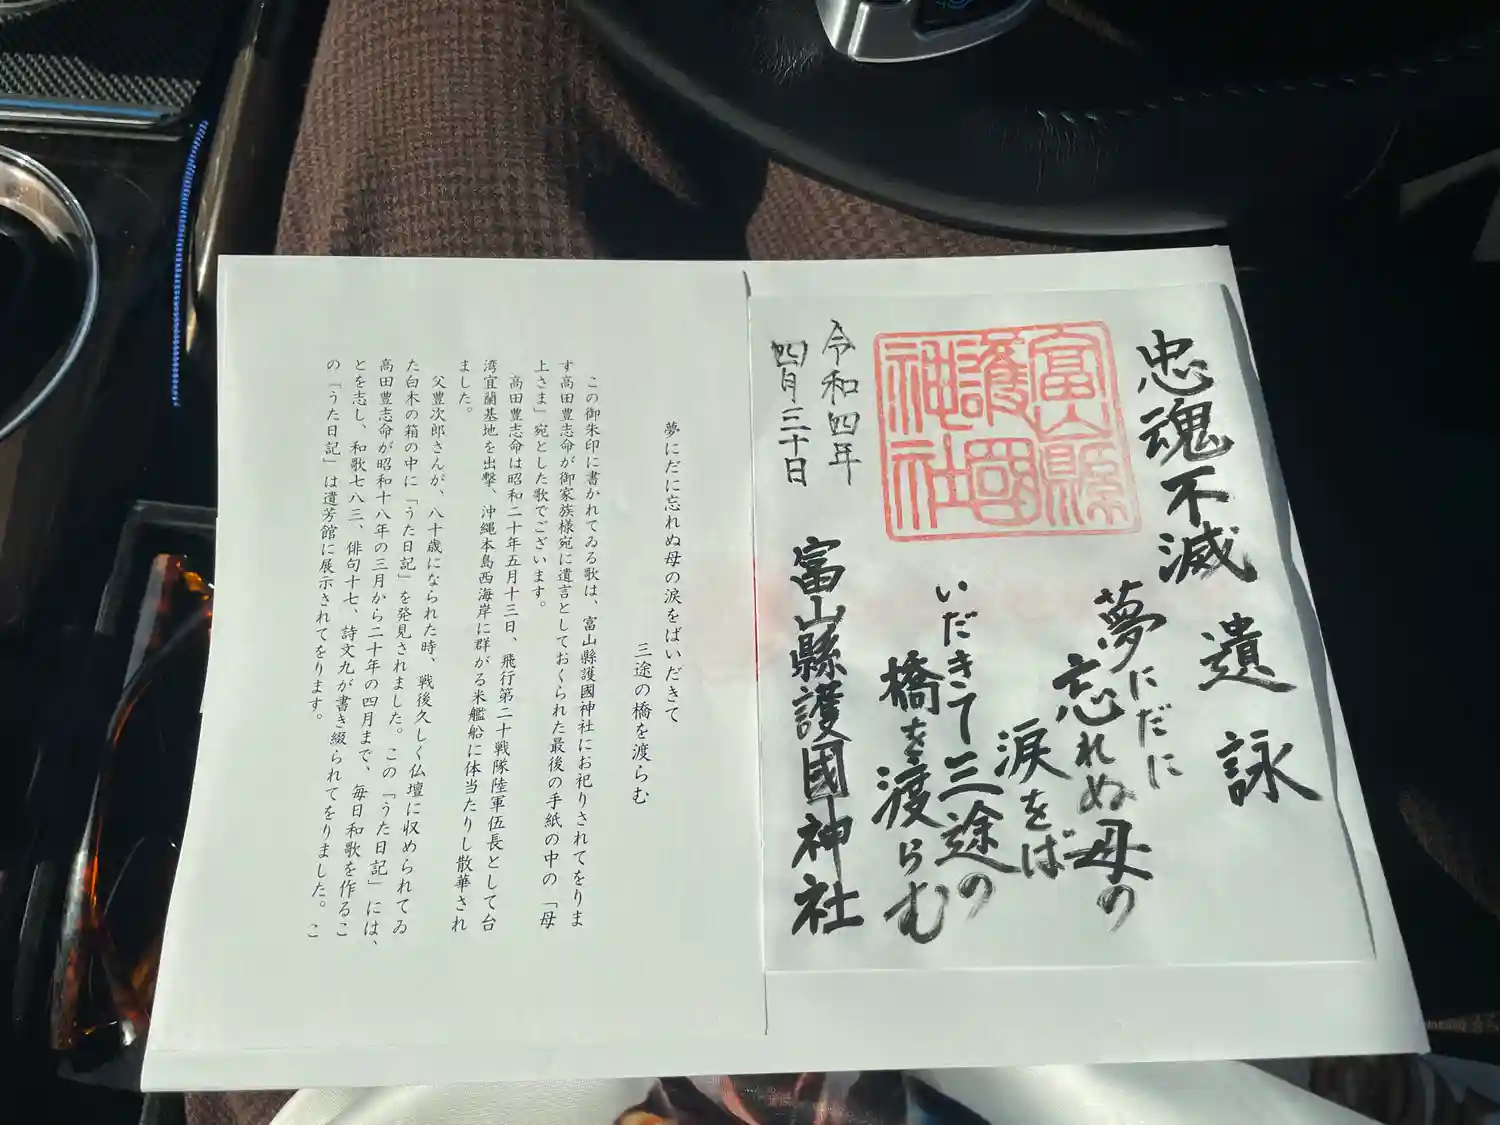 忠魂不滅 遺詠
夢にだに
忘れぬ母の
涙をば
いだきて三途の
橋を渡らむ
富山縣
護國
神社
令和四年
四月三十日
富山縣護國神社
夢にだに忘れぬ母の涙をばいだきて
三途の橋を渡らむ
この御朱印に書かれてゐる歌は、富山縣護國神社にお祀りされてをりま
す高田豊志命が御家族様宛に遺言としておくられた最後の手紙の中の「母
上さま」宛とした歌でございます。
高田豊志命は昭和二十年五月十三日、飛行第二十戦隊陸軍伍長として台
湾宜蘭基地を出撃、沖縄本島西海岸に群がる米艦船に体当たりし散華され
ました。
父豊次郎さんが、八十歳になられた時、戦後久しく仏壇に収められてゐ
た白木の箱の中に「うた日記」を発見されました。この「うた日記」には、
高田豊志命が昭和十八年の三月から二十年の四月まで、毎日和歌を作るこ
とを志し、和歌七八三、俳句十七、詩文九が書き綴られてをりました。こ
の「うた日記」は遺芳館に展示されてをります。